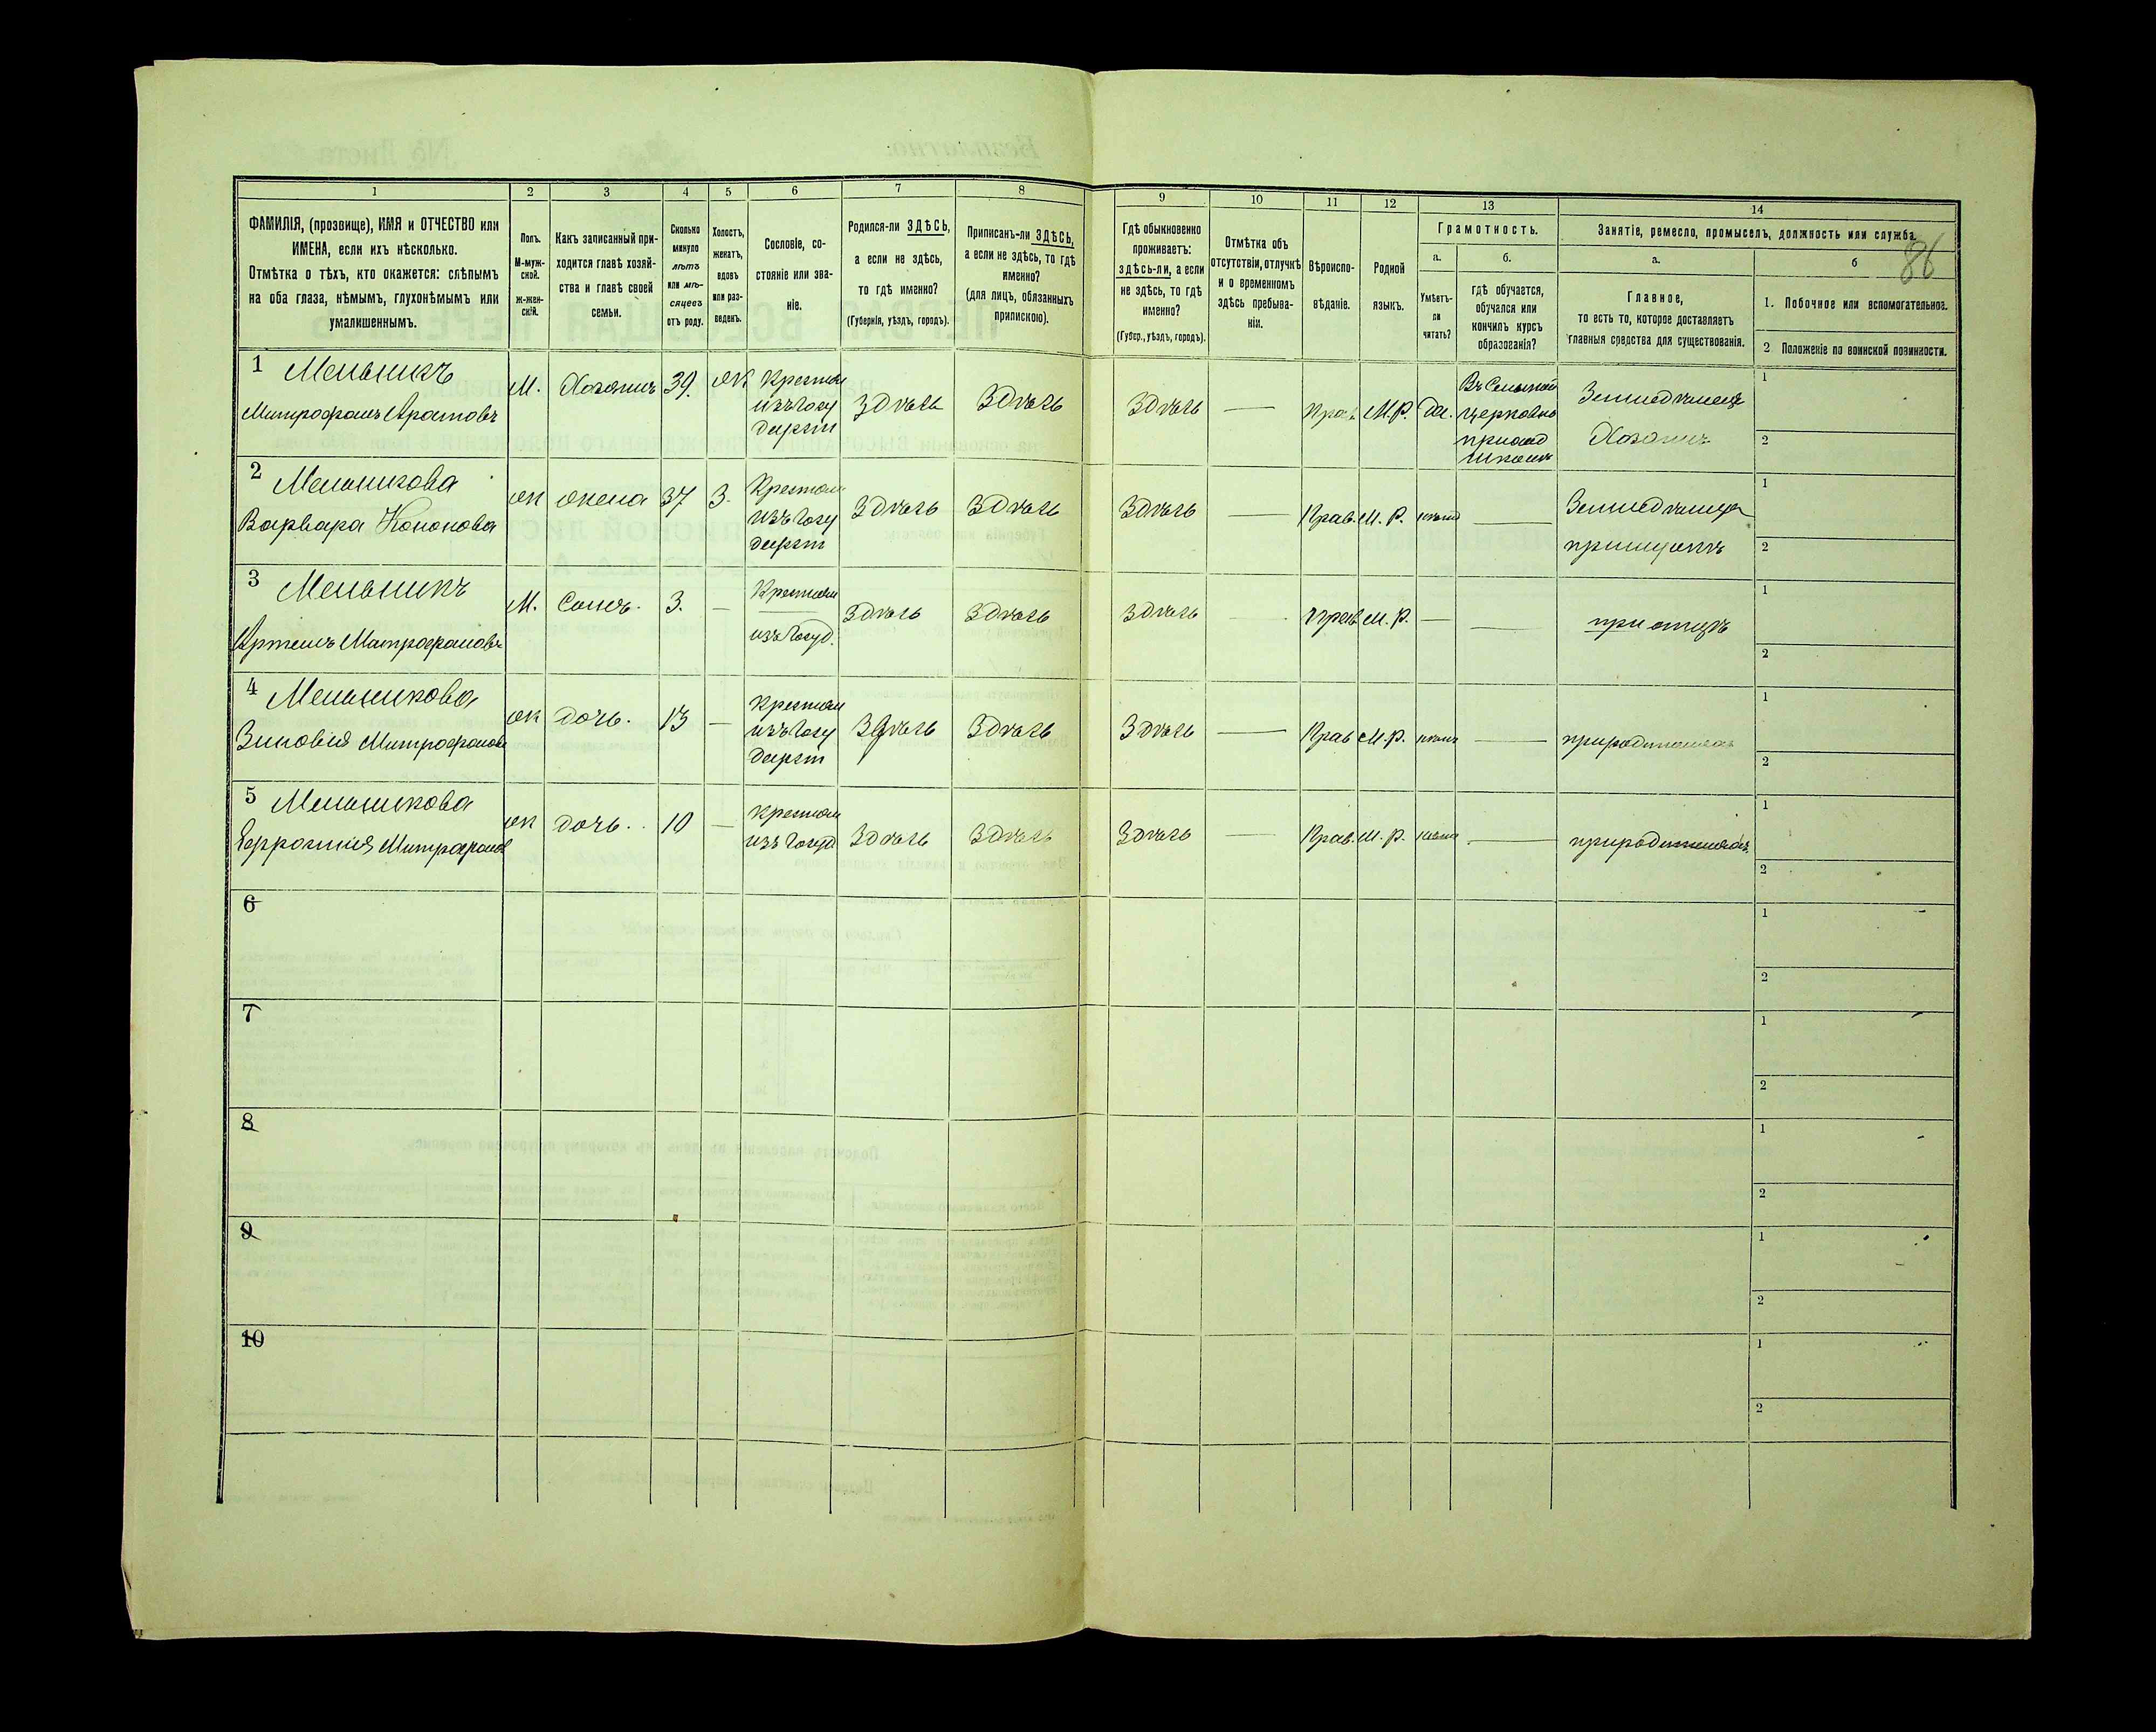 86
1 2 3 4 5 6 7 8 9 10 11 12 13 14
ФАМИЛІЯ, (прозвище), ИМЯ и ОТЧЕСТВО или
ИМЕНА, если ихъ нѣсколько.
Отмѣтка о тѣхъ, кто окажется: слѣпымъ
на оба глаза, нѣмымъ, глухонѣмымъ или
умалишеннымъ.
Полъ.
М-муж-
ской.
ж-жен-
скій.
Какъ записанный при-
ходится главѣ хозяй-
ства и главѣ своей
семьи.
Сколько
минуло
лѣтъ
или мѣ-
сяцевъ
отъ роду.
Холостъ,
женатъ,
вдовъ
или раз-
веденъ.
Сословіе, со-
стояніе или зва-
ніе.
Родился-ли ЗДѢСЬ,
а если не здѣсь,
то гдѣ именно?
(Губернія, уѣздъ, городъ).
Приписанъ-ли ЗДѢСЬ,
а если не здѣсь, то гдѣ
именно?
(для лицъ, обязанныхъ
припискою).
Гдѣ обыкновенно
проживаетъ:
здѣсь-ли, а если
не здѣсь, то гдѣ
именно?
(Губер., уѣздъ, городъ).
Отмѣтка объ
отсутствіи, отлучкѣ
и о временномъ
здѣсь пребыва-
ніи.
Вѣроиспо-
вѣданіе.
Родной
языкъ.
Грамотность.
а.
Умѣетъ-
ли
читать?
б.
гдѣ обучается,
обучался или
кончилъ курсъ
образованія?
Занятіе, ремесло, промыселъ, должность или служба.
а.
Главное,
то есть то, которое доставляетъ
главныя средства для существованія.
б
1. Побочное или вспомогательное.
2. Положеніе по воинской повинности.
1 Мельникъ
Митрофанъ
М. Хозяинъ 39. ж
Крестьян
изъ Госу
дарст
Здѣсь Здѣсь Здѣсь — Прав. М.Р. Да.
Въ Сельской
церковно
приход
школѣ
Земледѣлецъ
Хозяинъ
1
2
2 Мельникова
Варвара Кононова
ж жена 37 З.
Крестьян
изъ Госу
дарст
Здѣсь Здѣсь Здѣсь — Прав. М.Р. нѣтъ —
Земледѣлица
1
2
3 Мельникъ
Артемъ Митрофановъ
М. Сынъ. 3. —
Крестьян
изъ Госуд.
Здѣсь Здѣсь Здѣсь — Прав М.Р. — —
при отцѣ
1
2
4 Мельникова
Зиновія Митрофанова
ж дочь. 13 —
Крестьян
изъ Госу
дарст
Здѣсь Здѣсь Здѣсь — Прав М.Р. нѣтъ —
при родителяхъ
1
2
5 Мельникова
Митрофанов
ж дочь. 10 —
Крестьян
изъ Госуд
Здѣсь Здѣсь Здѣсь — Прав. М.Р. нѣтъ —
при родителяхъ
1
2
6
1
2
7
1
2
8
1
2
9
1
2
10
1
2